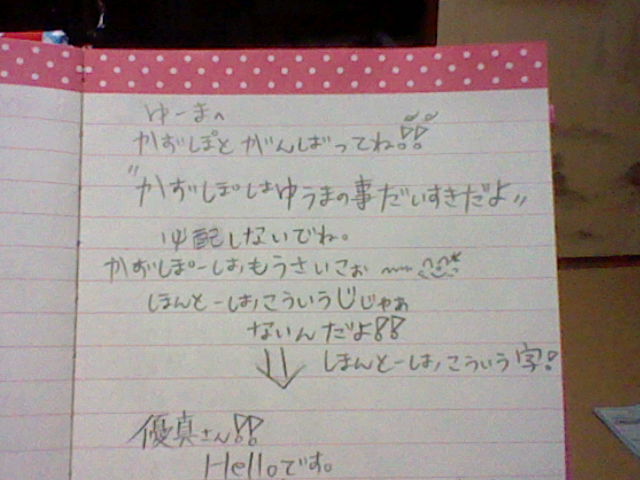 ゆーまへ
かずぽと がんばってね!!
"かずぽはゆうまの事だいすきだよ"
心配しないでね。
かずぽーはもうさいこぉ〜〜
ほんとーは、こういうじじゃぁ
ないんだよ!!
ほんとーは、こういう字!
優真さん!!
Helloです。